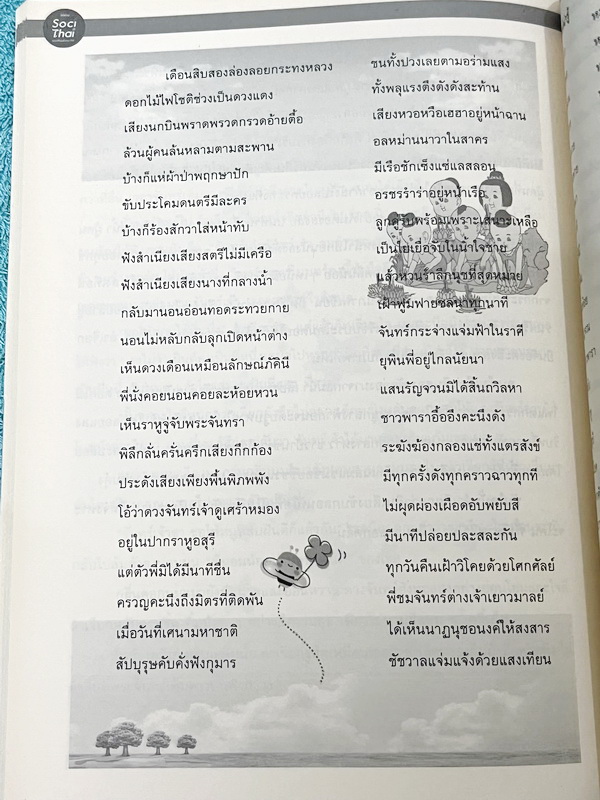 Soci
Thai
เดือนสิบสองล่องลอยกระทงหลวง ชนทั้งปวงเลยตามอร่ามแสง
ดอกไม้ไฟโชติช่วงเป็นดวงแดง ทั้งพลุแรงตึงตังดังสะท้าน
เสียงนกบินพราดพรวดกรวดอ้ายตื้อ เสียงหวอหวือเฮฮาอยู่หน้าฉาน
ล้วนผู้คนล้นหลามตามสะพาน อลหม่านนาวาในสาคร
บ้างก็แห่ผ้าป่าพฤกษาปัก มีเรือชักเซ็งแซ่แลสลอน
ขับประโคมดนตรีมีละคร อรชรรำร่าอยู่หน้าเรือ
บ้างก็ร้องสักวาใส่หน้าทับ ลูกคู่รับพร้อมเพราะเสนาะเหลือ
ฟังสำเนียงเสียงสตรีไม่มีเครือ เป็นใยเยื่อจับในน้ำใจชาย
ฟังสำเนียงเสียงนางที่กลางน้ำ แล้วหวนรำลึกนุชที่สุดหมาย
กลับมานอนอ่อนทอดระทวยกาย เฝ้าฟูมฟายชลนาทุกนาที
นอนไม่หลับกลับลุกเปิดหน้าต่าง จันทร์กระจ่างแจ่มฟ้าในราศี
เห็นดวงเดือนเหมือนลักษณ์ภัคินี ยุพินพี่อยู่ไกลนัยนา
พี่นั่งคอยนอนคอยละห้อยหวน แสนรัญจวนมิได้สิ้นถวิลหา
เห็นราหูจู่จับพระจันทรา ชาวพาราอื้ออึงคะนึงดัง
พิลึกลั่นครั่นครึกเสียงกึกก้อง ระฆังฆ้องกลองแซ่ทั้งแตรสังข์
ประดังเสียงเพียงพื้นพิภพพัง มีทุกครั้งดังทุกคราวฉาวทุกที
โอ้ว่าดวงจันทร์เจ้าดูเศร้าหมอง ไม่ผุดผ่องเผือดอับพยับสี
อยู่ในปากราหูอสุรี มีนาทีปล่อยปละสละกัน
แต่ตัวพี่มิได้มีนาทีชื่น ทุกวันคืนเฝ้าวิโยคด้วยโศกศัลย์
ครวญคะนึงถึงมิตรที่ติดพัน พี่ชมจันทร์ต่างเจ้าเยาวมาลย์
เมื่อวันที่เศนามหาชาติ ได้เห็นนาฏนุชอนงค์ให้สงสาร
สัปบุรุษคับคั่งฟังกุมาร ชัชวาลแจ่มแจ้งด้วยแสงเทียน